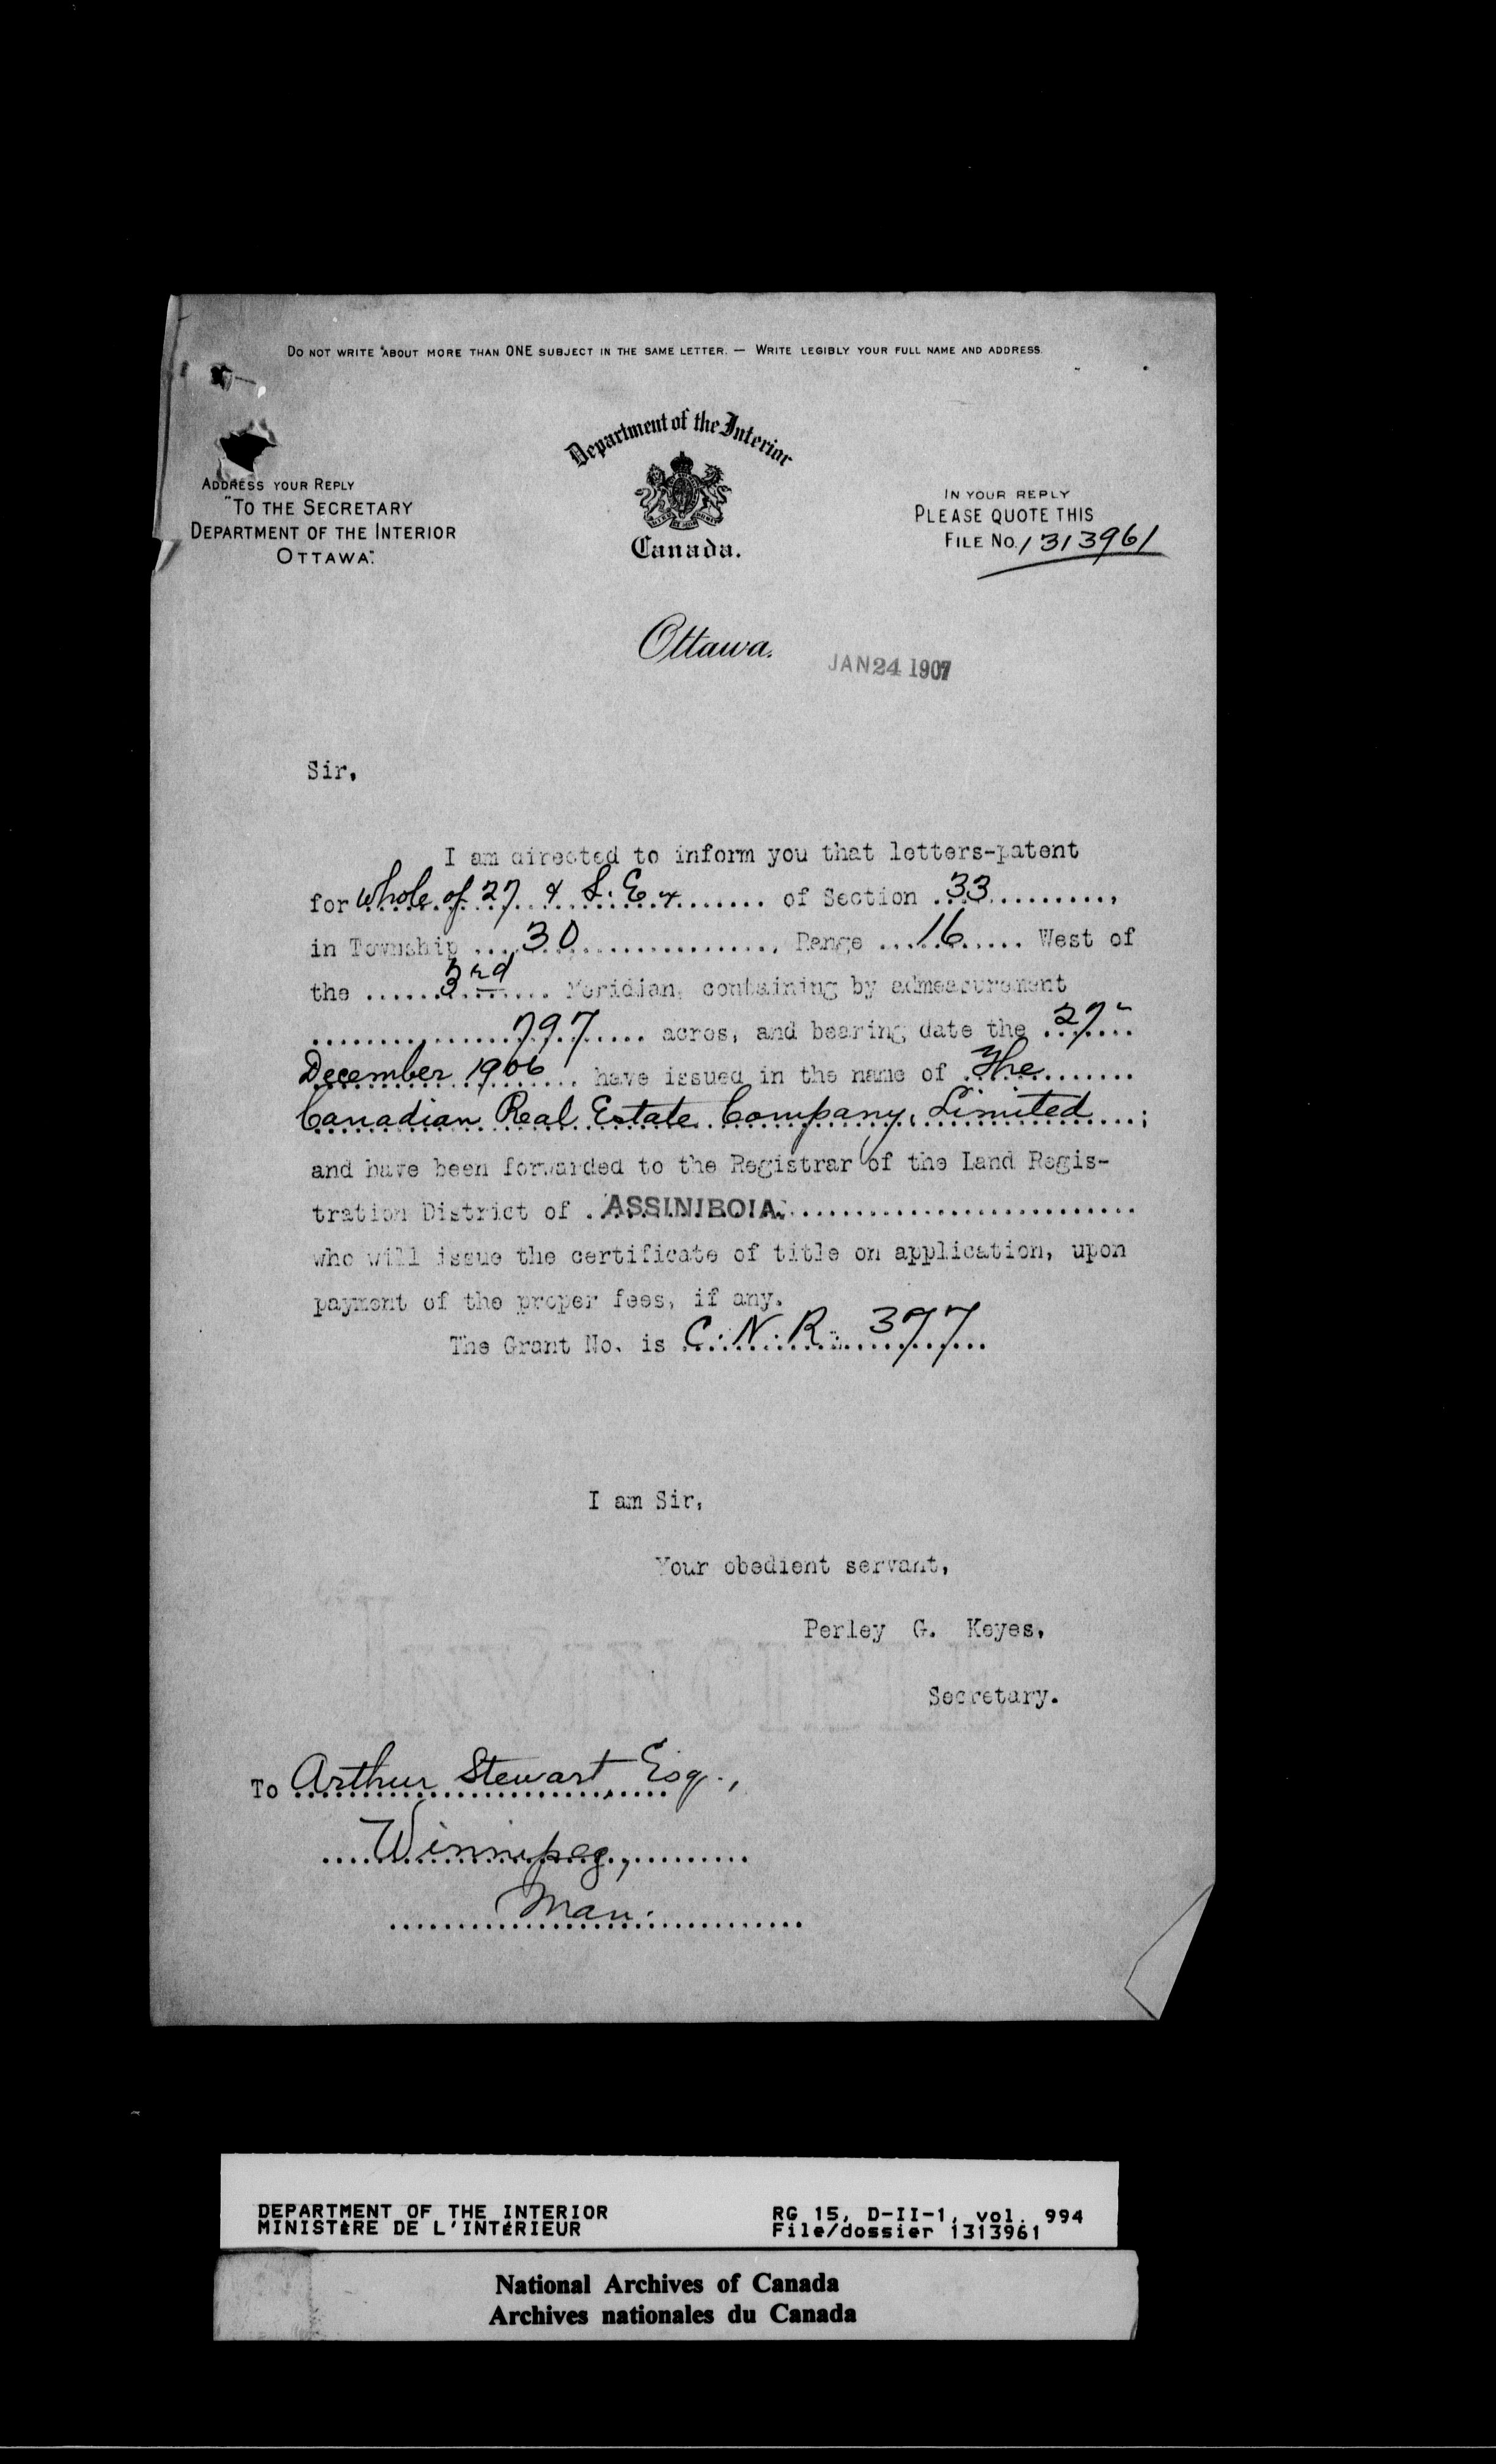 DO NOT WRITE ABOUT MORE THAN ONE SUBJECT IN THE SAME LETTER. — WRITE LEGIBLY YOUR FULL NAME AND ADDRESS.
Department of the Interior
Canada.
ADDRESS YOUR REPLY
"TO THE SECRETARY
DEPARTMENT OF THE INTERIOR
OTTAWA."
IN YOUR REPLY
PLEASE QUOTE THIS
FILE NO. 1313961
Ottawa. JAN 24 1907
Sir,
I am directed to inform you that letters-patent
for Whole of 27 & S. E. 4 of Section 33,
in Township 30, Range 16 West of
the 3rd Meridian, containing by admeasurement
797 acres, and bearing date the 27"
December 1906 have issued in the name of The
Canadian Real Estate Company, Limited;
and have been forwarded to the Registrar of the Land Regis-
tration District of ASSINIBOIA.
who will issue the certificate of title on application, upon
payment of the proper fees, if any.
The Grant No. is C. N. R. 377
I am Sir,
Your obedient servant,
Perley G. Keyes,
Secretary.
To Arthur Stewart Esq.,
Winnipeg,
Man.
DEPARTMENT OF THE INTERIOR RG 15, D-II-1, vol. 994
MINISTÈRE DE L'INTÉRIEUR File/dossier 1313961
National Archives of Canada
Archives nationales du Canada